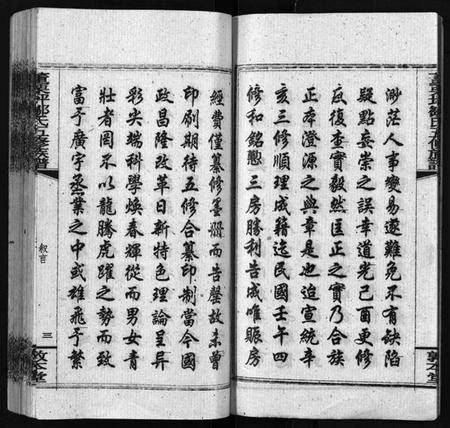 渺茫人事變易遂難免不有缺陷
疑點妄崇之誤幸道光己酉更修
反復查實毅然匡正之實乃合族
正本澄源之典章是也迨宣統辛
亥三修順理成籍迄民國壬午四
修和銘懇三房勝利告成唯賬房
經費僅纂修墨爾而告罄故未曾
印刷期待五修合纂印制當今國
政昌隆改革日新特色理論呈异
彩尖端科學煥春輝從而男女青
壯者罔不以龍騰虎躍之勢而致
富于廣宇丞業之中或雄飛于繁
氏五修族譜
敘言
三
敦本堂